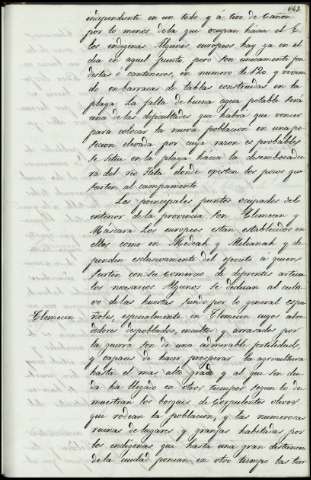 162
independiente en un todo y á tiro de Cañon
por lo menos de la que ocupan hacia el E.
los indígenas. Algunos europeos hay ya en el
dia en aquel punto pero son unicamente fon
distas ó cantineros, en numero de 120 y viven
en barracas de tablas construidas en la
playa. La falta de buena agua potable será
una de las dificultades que habra que vencer
para colocar la nueva poblacion en una po
sicion elevada por cuya razon es probable
se situe en la playa hacia la desembocadu
ra del rio donde existen los pozos que
surten al campamento.
Los principales puntos ocupados del
interior de la provincia son Tlemecen y
Mascara. Los europeos están establecidos en
ellos como en Medeah y Milianah y de
penden esclusivamente del ejercito á quien
surten con su Comercio de diferentes articu
los necesarios. Algunos se dedican al culti
vo de las huertas siendo por lo general espa
Tlemecen
ñoles especialmente en Tlemecen cuyos alre
dedores despoblados, incultos y arrasados por
la guerra son de una admirable fertilidad,
y capaces de hacer prosperar la agricultura
hasta el mas alto grado y al que sin du
da ha llegado en otros tiempos segun lo de
muestran los bosques de Corpulentos olivos
que rodean la poblacion, y las numerosas
ruinas de lugares y granjas habitadas por
los indígenas que hasta una gran distancia
de la ciudad ponian en otro tiempo las tier